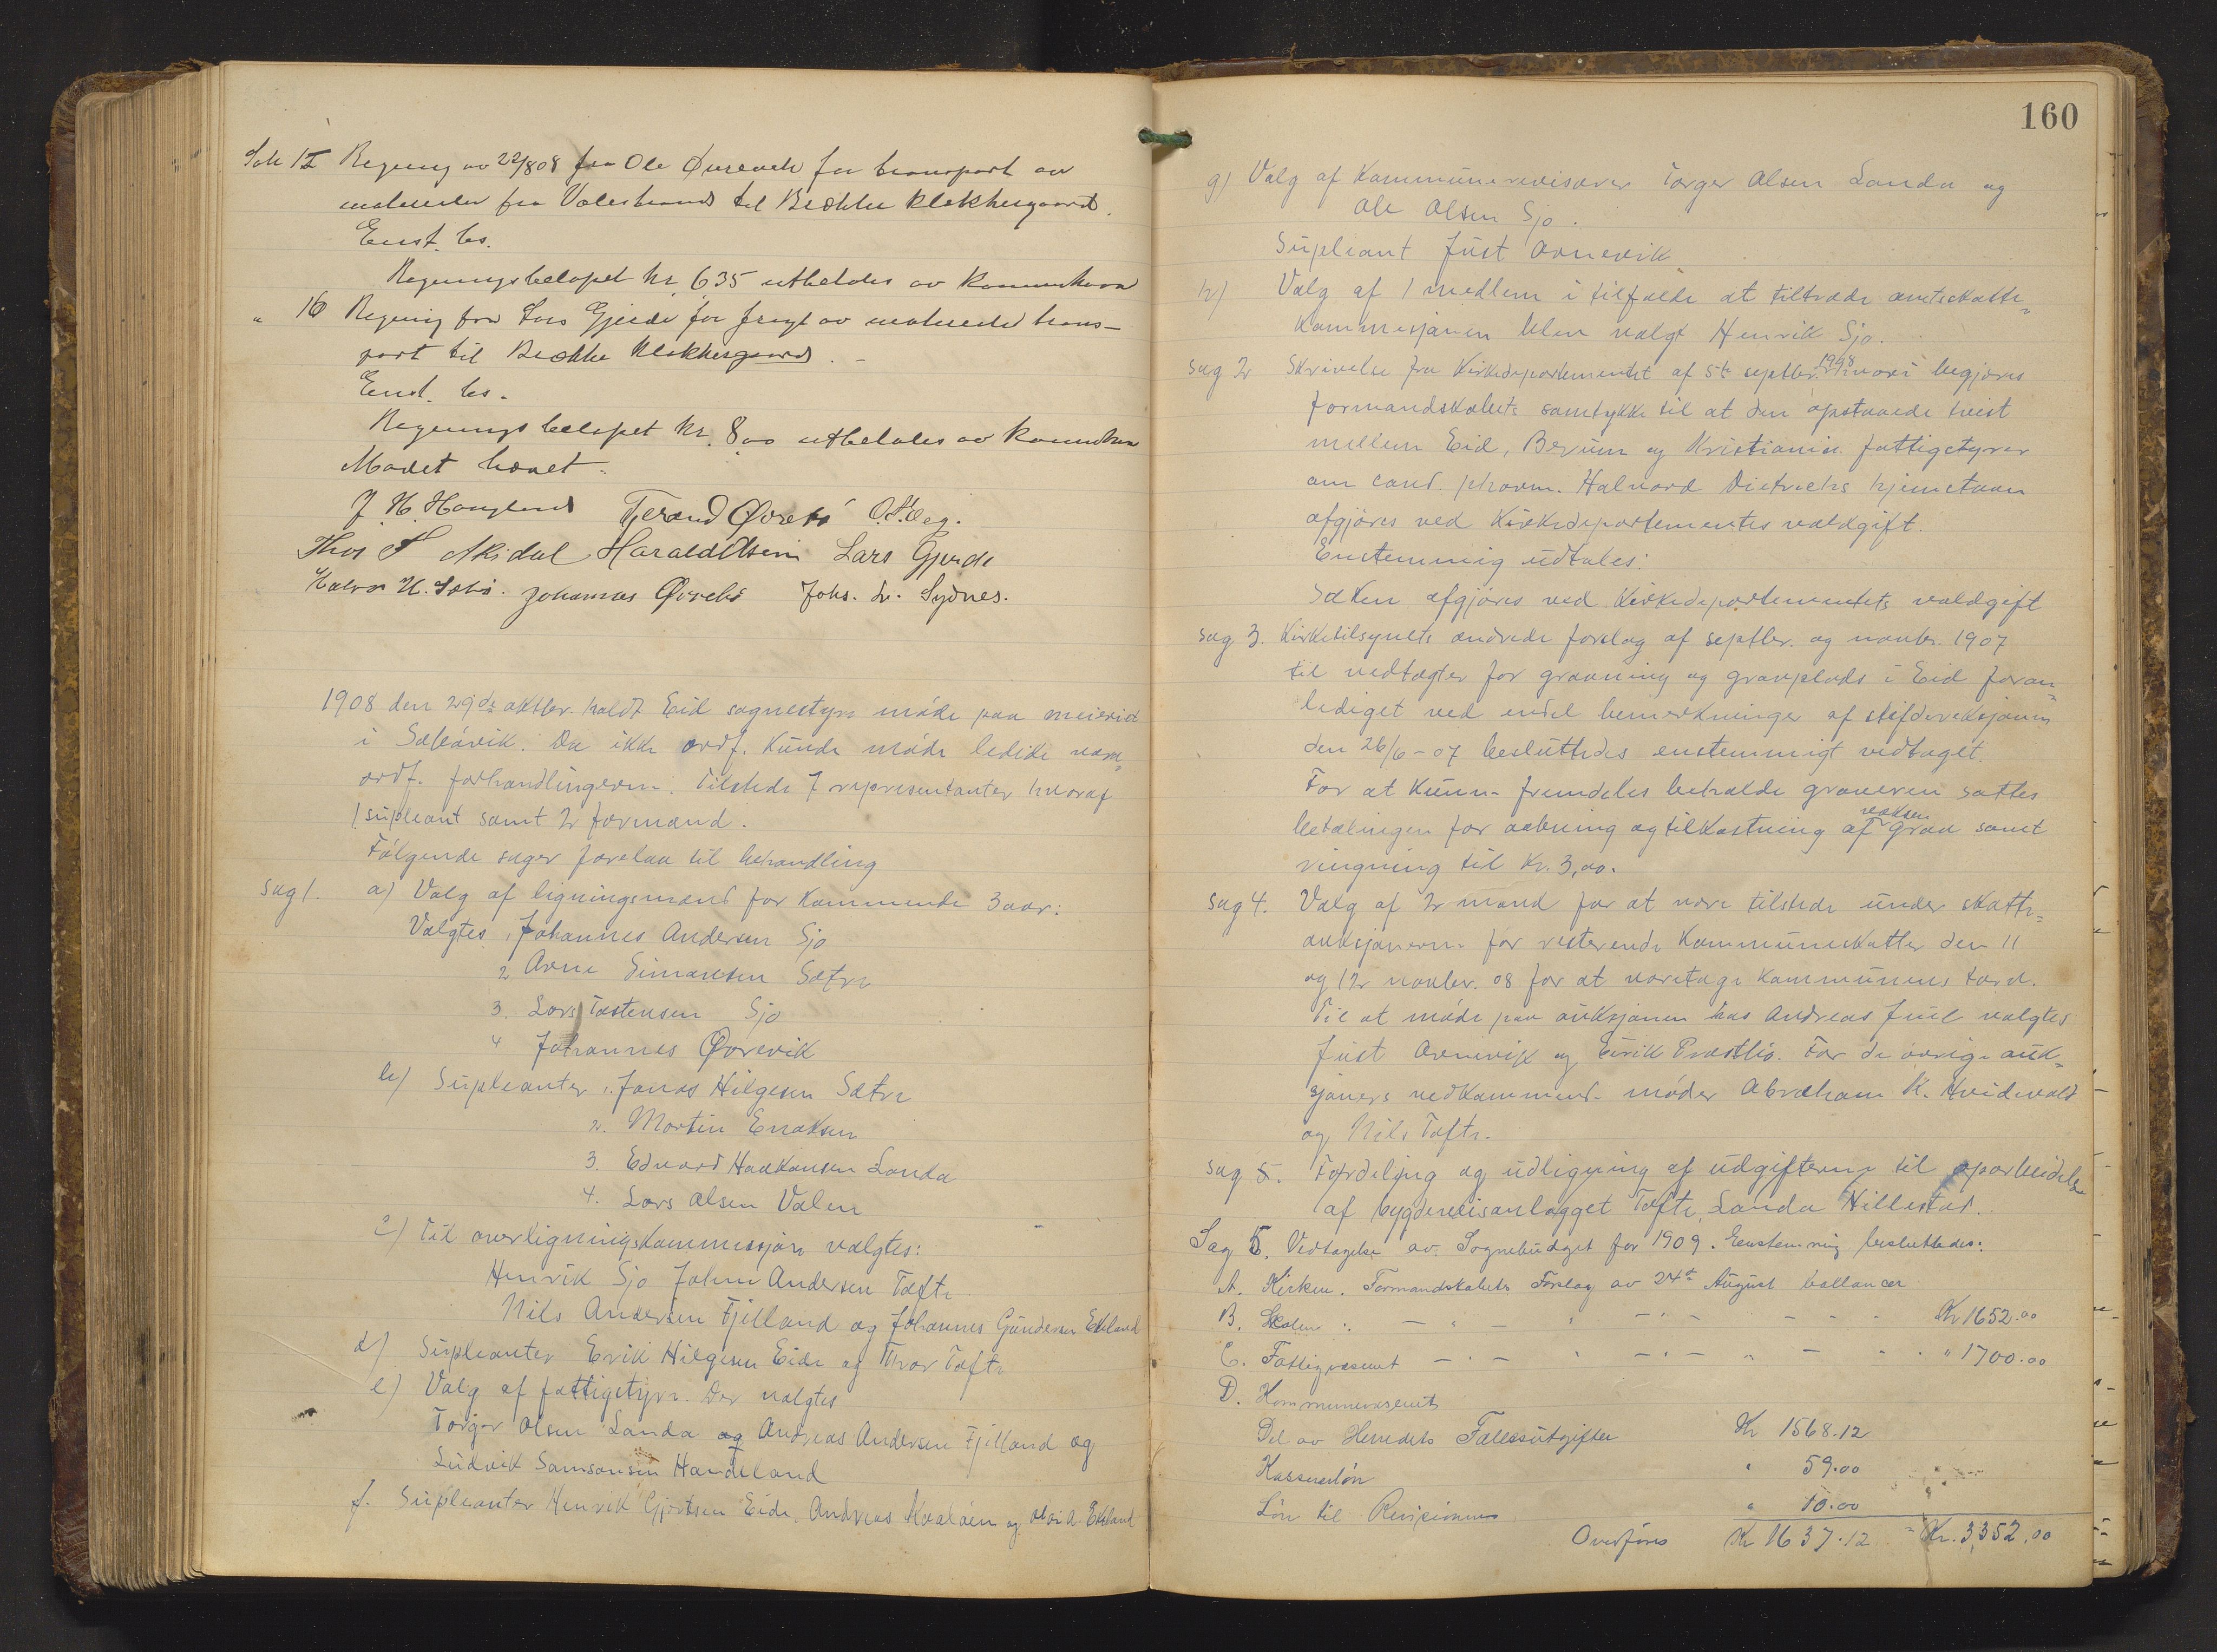 Sak 15 Regning av 22/8 08 fra Ole Øvrevik for transport av
materialer fra Valestrand til Bække klokkergaard.
Enst. bs.
Regningsbeløpet kr. 635 utbetales av kommunekassa
" 16 Regning fra Lars Gjerde for fragt av materialer trans-
port til Bække klokkergaard. -
Enst. bs.
Regningsbeløpet kr. 8,00 utbetales av kommunekassen
Mødet hævet.
J. H. Haugland Tjerand Øvrebø O. Steg.
Thor T Økidal Harald Olsen Lars Gjerde
Halvor K. Sæbø. Johannes Øvrebø Johs. L. Sydnes.
1908 den 29de oktbr. holdt Eid sognestyre møde paa meieriet
i Sæbøvik. Da ikke ordf. kunde møde ledede vara=
ordf. forhandlingerne. Tilstede 7 representanter hvoraf
1 supleant samt 2 formænd.
Følgende sager forelaa til behandling
Sag 1. a) Valg af ligningsmænd for kommende 3 aar:
Valgtes 1. Johannes Andersen Sjo
2 Arne Simonsen Sætre
3. Lars Tostensen Sjo
4 Johannes Øvrevik
b) Supleanter 1. Jonas Hilgesen Sætre
2. Martin Enoksen
3. Edvard Haakonsen Landa
4. Lars Olsen Valen
c) Til overligningskommisjon valgtes:
Henrik Sjo Johan Andersen Tofte
Nils Andersen Fjelland og Johannes Gundersen Ekeland
d) Supleanter Erik Hilgesen Eide og Thor Tofte
e) Valg af fattigstyre. Der valgtes
Torger Olsen Landa og Andreas Andersen Fjelland og
Ludvik Samsonsen Handeland
f. Supleanter Henrik Gjertsen Eide, Andreas Kvaløen og Ola A. Ekeland
160
g) Valg af kommunerevisorer Torger Olsen Landa og
Ole Olsen Sjo.
Supleant Just Arnevik
h) Valg af 1 medlem i tilfælde at tiltræde amtsskatte=
kommisjonen blev valgt Henrik Sjo.
Sag 2 Skrivelse fra Kirkedepartementet af 5te septbr. 1908 hvori begjæres
formandskabets samtykke til at den opstaaede tvist
mellem Eid, Berum og Kristiania fattigstyrer
om cand. pharm. Halvard Dietrichs hjemstavn
afgjøres ved Kirkedepartementets voldgift.
Enstemmig udtales:
Saken afgjøres ved Kirkedepartementets voldgift
Sag 3. Kirketilsynets ændrede forslag af septbr. og novbr. 1907
til vedtægter for gravning og gravplads i Eid foran=
lediget ved endel bemerkninger af stiftdireksjonen
den 26/6-07 besluttedes enstemmigt vedtaget.
For at kunne fremdeles beholde graveren sattes
betalingen for aabning og tilkastning af voksen grav samt
ringning til kr. 3,00.
Sag 4. Valg af 2 mænd for at være tilstede under skatte=
auksjonerne for resterende kommuneskatter den 11
og 12 novbr. 08 for at varetage kommunens tarv.
Til at møde paa auksjonen hos Andreas Juul valgtes
Just Arnevik og Eirik Prestlio. For de øvrige auk=
sjoners vedkommende møder Abraham K. Hvidevold
og Nils Tofte.
Sag 5. Fordeling og udligning af udgifterne til oparbeidelse
af bygdeveisanlægget Tofte, Landa Hillestad.
Sag 6. Vedtagelse av Sognebudget for 1909. Enstemmig besluttedes:
A. Kirken. Formandskabets Forslag av 24de August ballancer
B. Skolen : - " - " - " - - - Kr 1652.00
C. Fattigvæsenet - " - " - " - " - " " 1700.00
D. Kommunevæsenet
Del av Herredets Fællesutgifter Kr 1568.12
Kassererløn " 59.00
Løn til Revisionen " 10.00
Overføres Kr 1637.12 Kr. 3,352.00